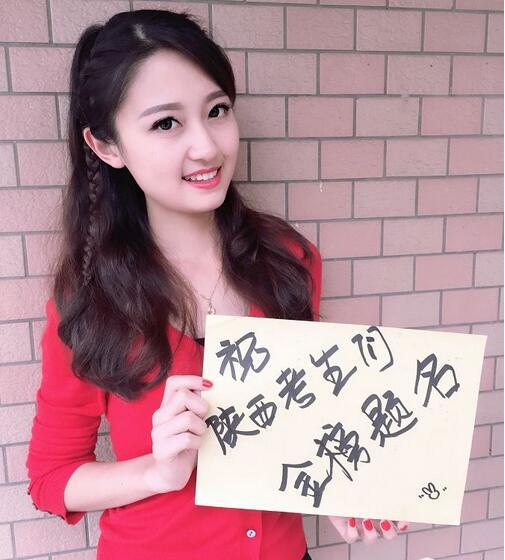 祝
陕西考生们
金榜题名